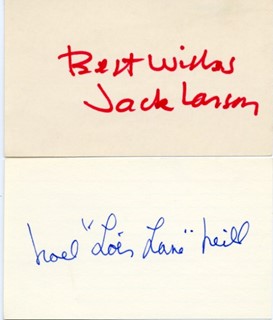 Best Wishes
Jack Larson
Noel "Lois Lane" Neill